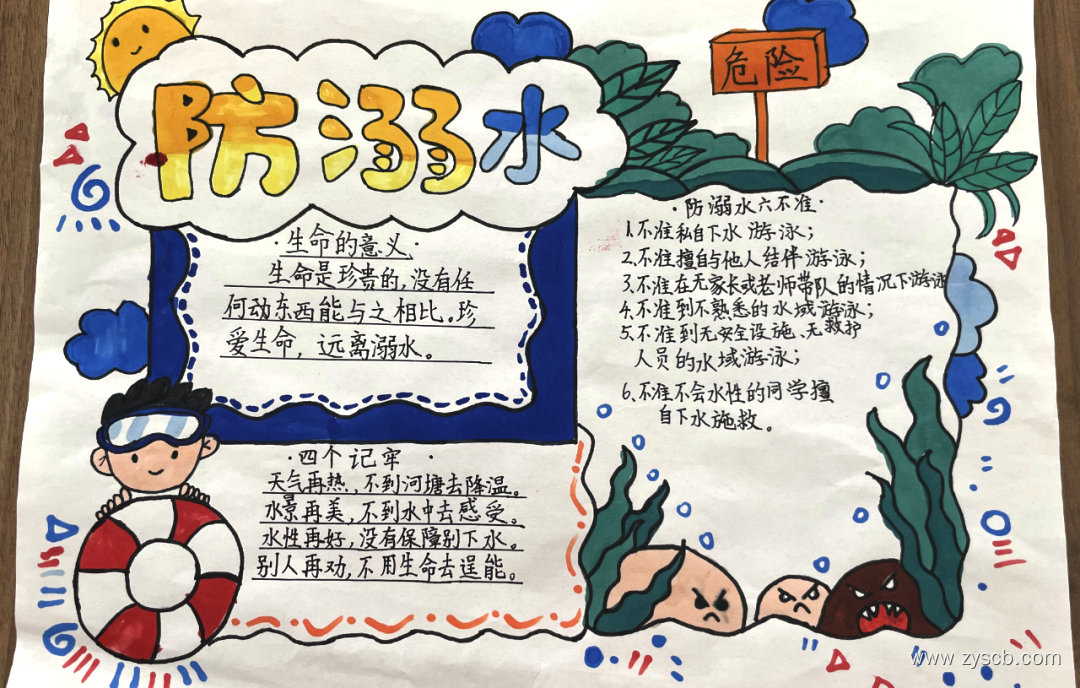 防溺水
危险
·生命的意义·
生命是珍贵的,没有任
何动东西能与之相比。珍
爱生命,远离溺水。
·四个记牢·
天气再热,不到河塘去降温。
水景再美,不到水中去感受。
水性再好,没有保障别下水。
别人再劝,不用生命去逞能。
·防溺水六不准·
1.不准私自下水游泳;
2.不准擅自与他人结伴游泳;
3.不准在无家长或老师带队的情况下游泳
4.不准到不熟悉的水域游泳;
5.不准到无安全设施、无救护
人员的水域游泳;
6.不准不会水性的同学擅
自下水施救。
www.zyscb.com